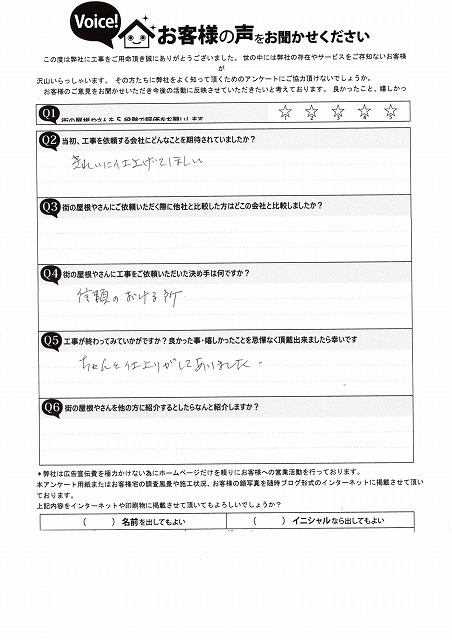 Voice!
お客様の声をお聞かせください
この度は弊社に工事をご用命頂き誠にありがとうございました。 世の中には弊社の存在やサービスをご存知ないお客様が
沢山いらっしゃいます。 その方たちに弊社をよく知って頂くためのアンケートにご協力頂けないでしょうか。
お客様のご意見をお聞かせいただき今後の活動に反映させていただきたいと考えております。 良かったこと、嬉しかっ
Q1 街の屋根やさんを5段階で評価をお願いします
☆ ☆ ☆ ☆ ☆
1 2 3 4 5
Q2 当初、工事を依頼する会社にどんなことを期待されていましたか?
きれいに仕上げてほしい
Q3 街の屋根やさんにご依頼いただく際に他社と比較した方はどこの会社と比較しましたか?
Q4 街の屋根やさんに工事をご依頼いただいた決め手は何ですか?
信頼のおける所
Q5 工事が終わってみていかがですか?良かった事・嬉しかったことを忌憚なく頂戴出来ましたら幸いです
ちゃんと仕上りがしてありました。
Q6 街の屋根やさんを他の方に紹介するとしたらなんと紹介しますか?
*弊社は広告宣伝費を極力かけない為にホームページだけを頼りにお客様への営業活動を行っております。
本アンケート用紙またはお客様宅の調査風景や施工状況、お客様の顔写真を随時ブログ形式のインターネットに掲載させて頂いて
おります。
上記内容をインターネットや印刷物に掲載させて頂いてもよろしいでしょうか?
( ) 名前を出してもよい ( ) イニシャルなら出してもよい